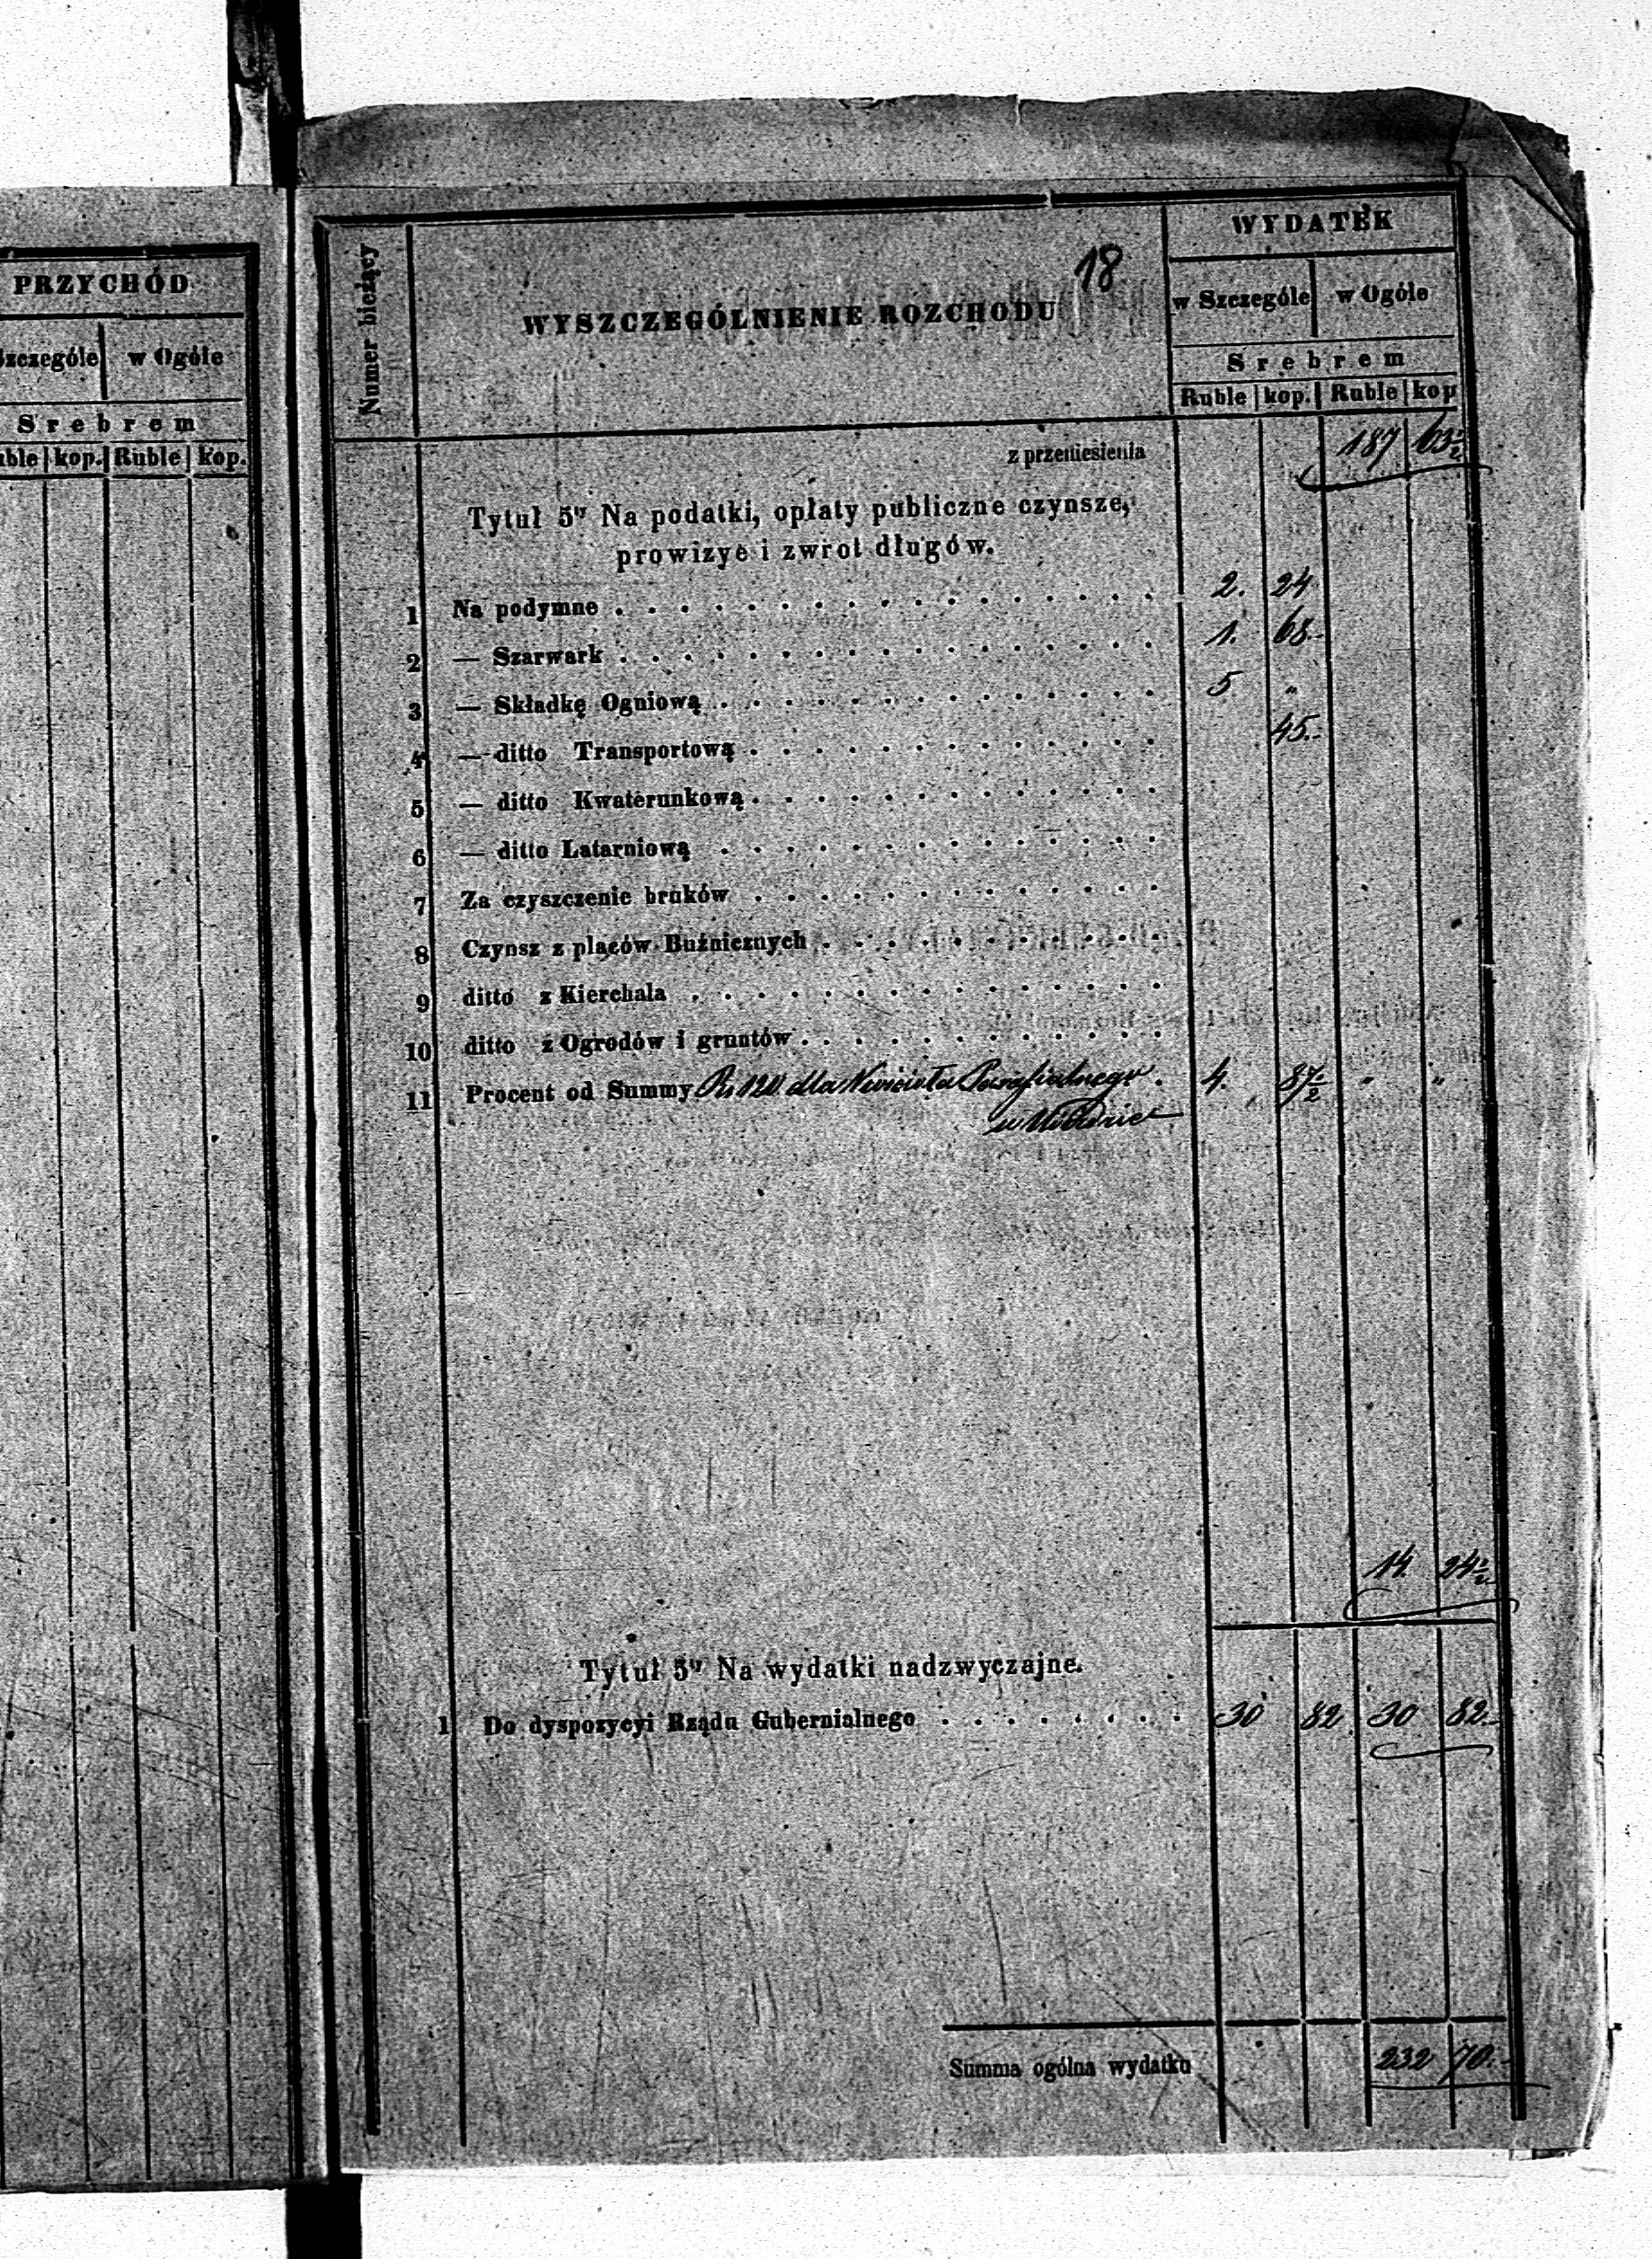 PRZYCHÓD
Szczególe w Ogóle
Srebrem
Ruble kop. Ruble kop.
18
Numer bieżący
WYSZCZEGÓLNIENIE ROZCHODU
WYDATEK
w Szczególe w Ogóle
Srebrem
Ruble kop. Ruble kop
z przeniesienia 187 63½
Tytuł 5ty Na podatki, opłaty publiczne czynsze,
prowizye i zwrot długów.
1 Na podymne . . . 2. 24
2 — Szarwark . . . 1. 68.-
3 — Składkę Ogniową . . . 5 "
4 — ditto Transportową . . . 45.-
5 — ditto Kwaterunkową . . .
6 — ditto Latarniową . . .
7 Za czyszczenie bruków . . .
8 Czynsz z placów Buźnicznych . . .
9 ditto z Kierchala . . .
10 ditto z Ogrodów i gruntów . . .
11 Procent od Summy Rs 120 dla Kościoła Parafialnego . 4. 87½ " "
w
14. 24½
Tytuł 5ty Na wydatki nadzwyczajne.
1 Do dyspozycyi Rządu Gubernialnego . . . 30 82 30 82.-
Summa ogólna wydatku 232 70.-